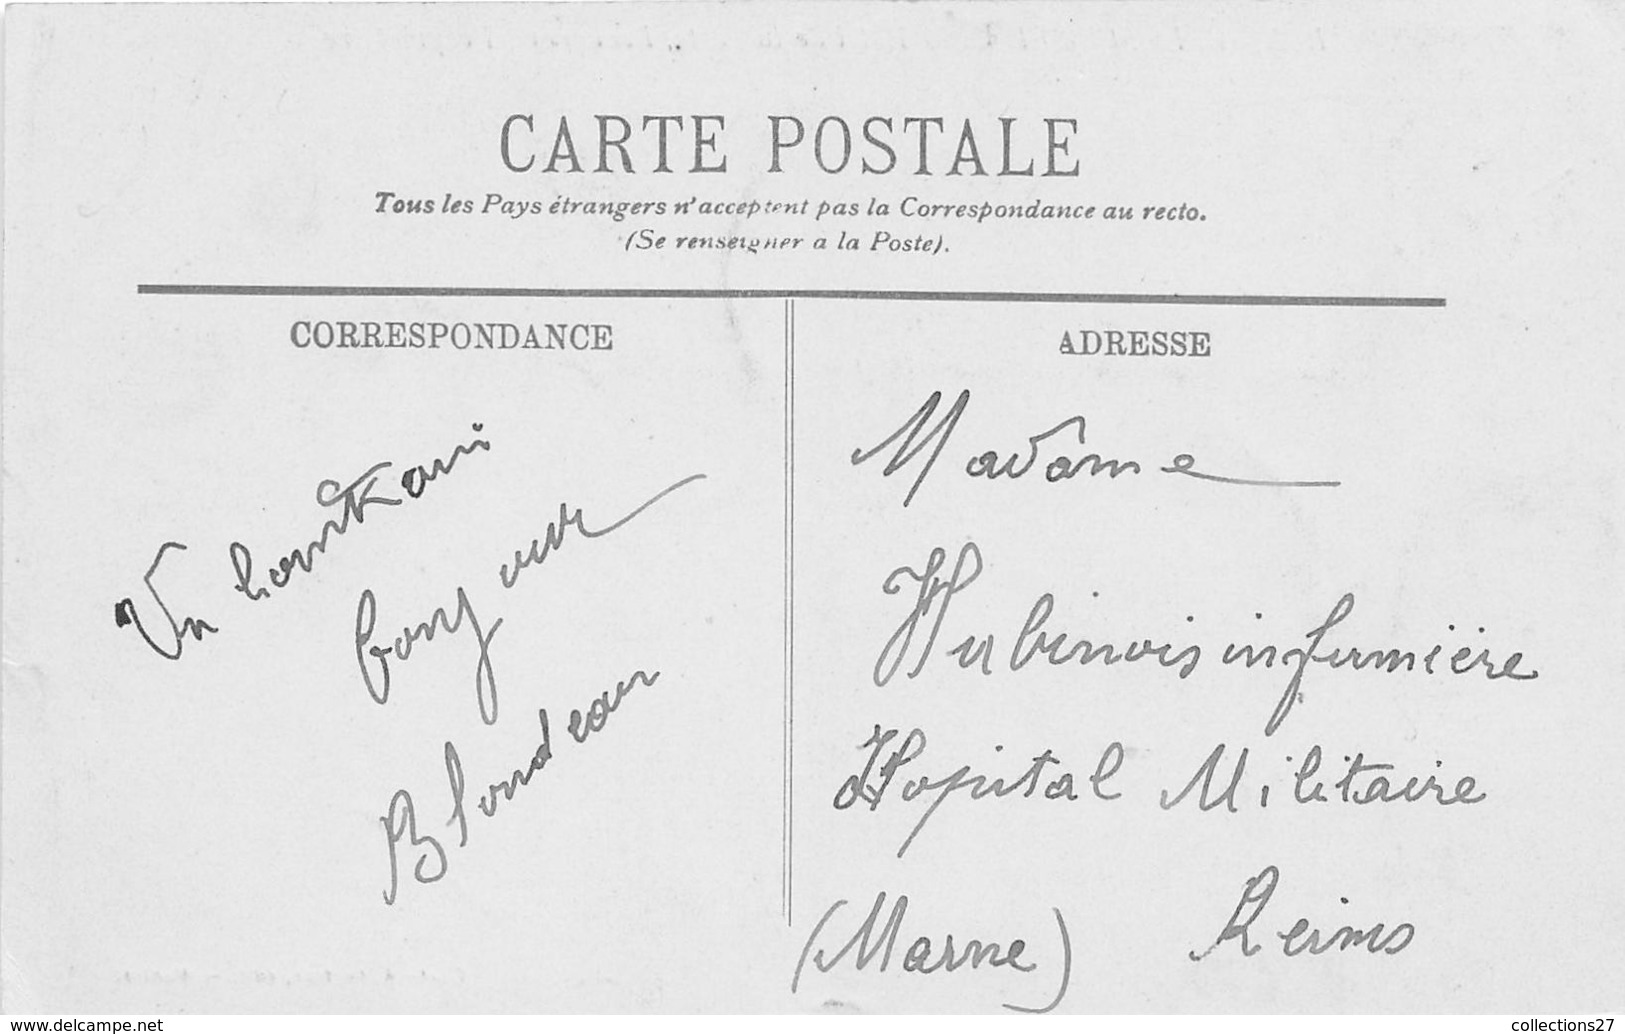 CARTE POSTALE
Tous les Pays étrangers n'acceptent pas la Correspondance au recto.
(Se renseigner a la Poste).
CORRESPONDANCE
Un
bonjour
Blondeau
ADRESSE
Madame
Hubinois infirmière
Hopital Militaire
Reims
(Marne)
www.delcampe.net
collections27